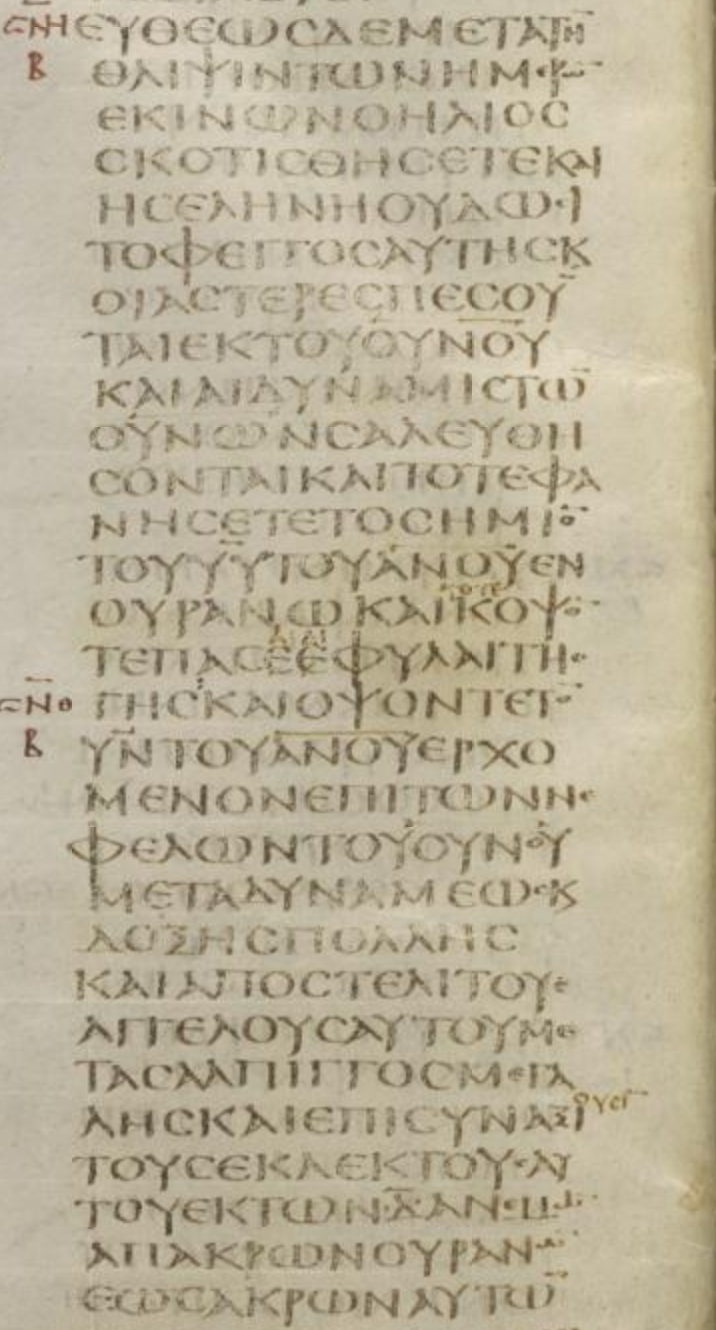 ΣΝΗ ΕΥΘΕΩCΔΕΜΕΤΑΤΗ̅
Β ΘΛΙΨΙΝΤΩΝΗΜΕΡΩ̅
ΕΚΙΝΩΝΟΗΛΙΟC
CΚΟΤΙCΘΗCΕΤΕΚΑΙ
ΗCΕΛΗΝΗΟΥΔΩCΙ
ΤΟΦΕΓΓΟCΑΥΤΗCΚ
ΟΙΑCΤΕΡΕCΠΕCΟΥ̅
ΤΑΙΕΚΤΟΥΟΥΝΟΥ
ΚΑΙΑΙΔΥΝΑΜΙCΤΩ̅
ΟΥΝΩΝCΑΛΕΥΘΗ
CΟΝΤΑΙΚΑΙΤΟΤΕΦΑ
ΝΗCΕΤΕΤΟCΗΜΙΟ̅
ΤΟΥΥ̅Υ̅ΤΟΥΑΝΟΥΕΝ
ΟΥΡΑΝΩΚΑΙΚΟΨΟ̅
ΤΕΠΑCΕΕΦΥΛΑΙΤΗC
ΣΝΘ ΓΗCΚΑΙΟΨΟΝΤΕΤΟ̅
Β Υ̅Ν̅ΤΟΥΑΝΟΥΕΡΧΟ
ΜΕΝΟΝΕΠΙΤΩΝΝΕ
ΦΕΛΩΝΤΟΥΟΥΝΟΥ
ΜΕΤΑΔΥΝΑΜΕΩCΚ
ΔΟΞΗCΠΟΛΛΗC
ΚΑΙΑΠΟCΤΕΛΙΤΟΥC
ΑΓΓΕΛΟΥCΑΥΤΟΥΜΕ
ΤΑCΑΛΠΙΓΓΟCΜΕΓΑ
ΛΗCΚΑΙΕΠΙCΥΝΑΞΙ
ΤΟΥCΕΚΛΕΚΤΟΥCΑΥ
ΤΟΥΕΚΤΩΝΔ̅ΑΝΕΜΩ̅
ΑΠΑΚΡΩΝΟΥΡΑΝΩ̅
ΕΩCΑΚΡΩΝΑΥΤΩ̅